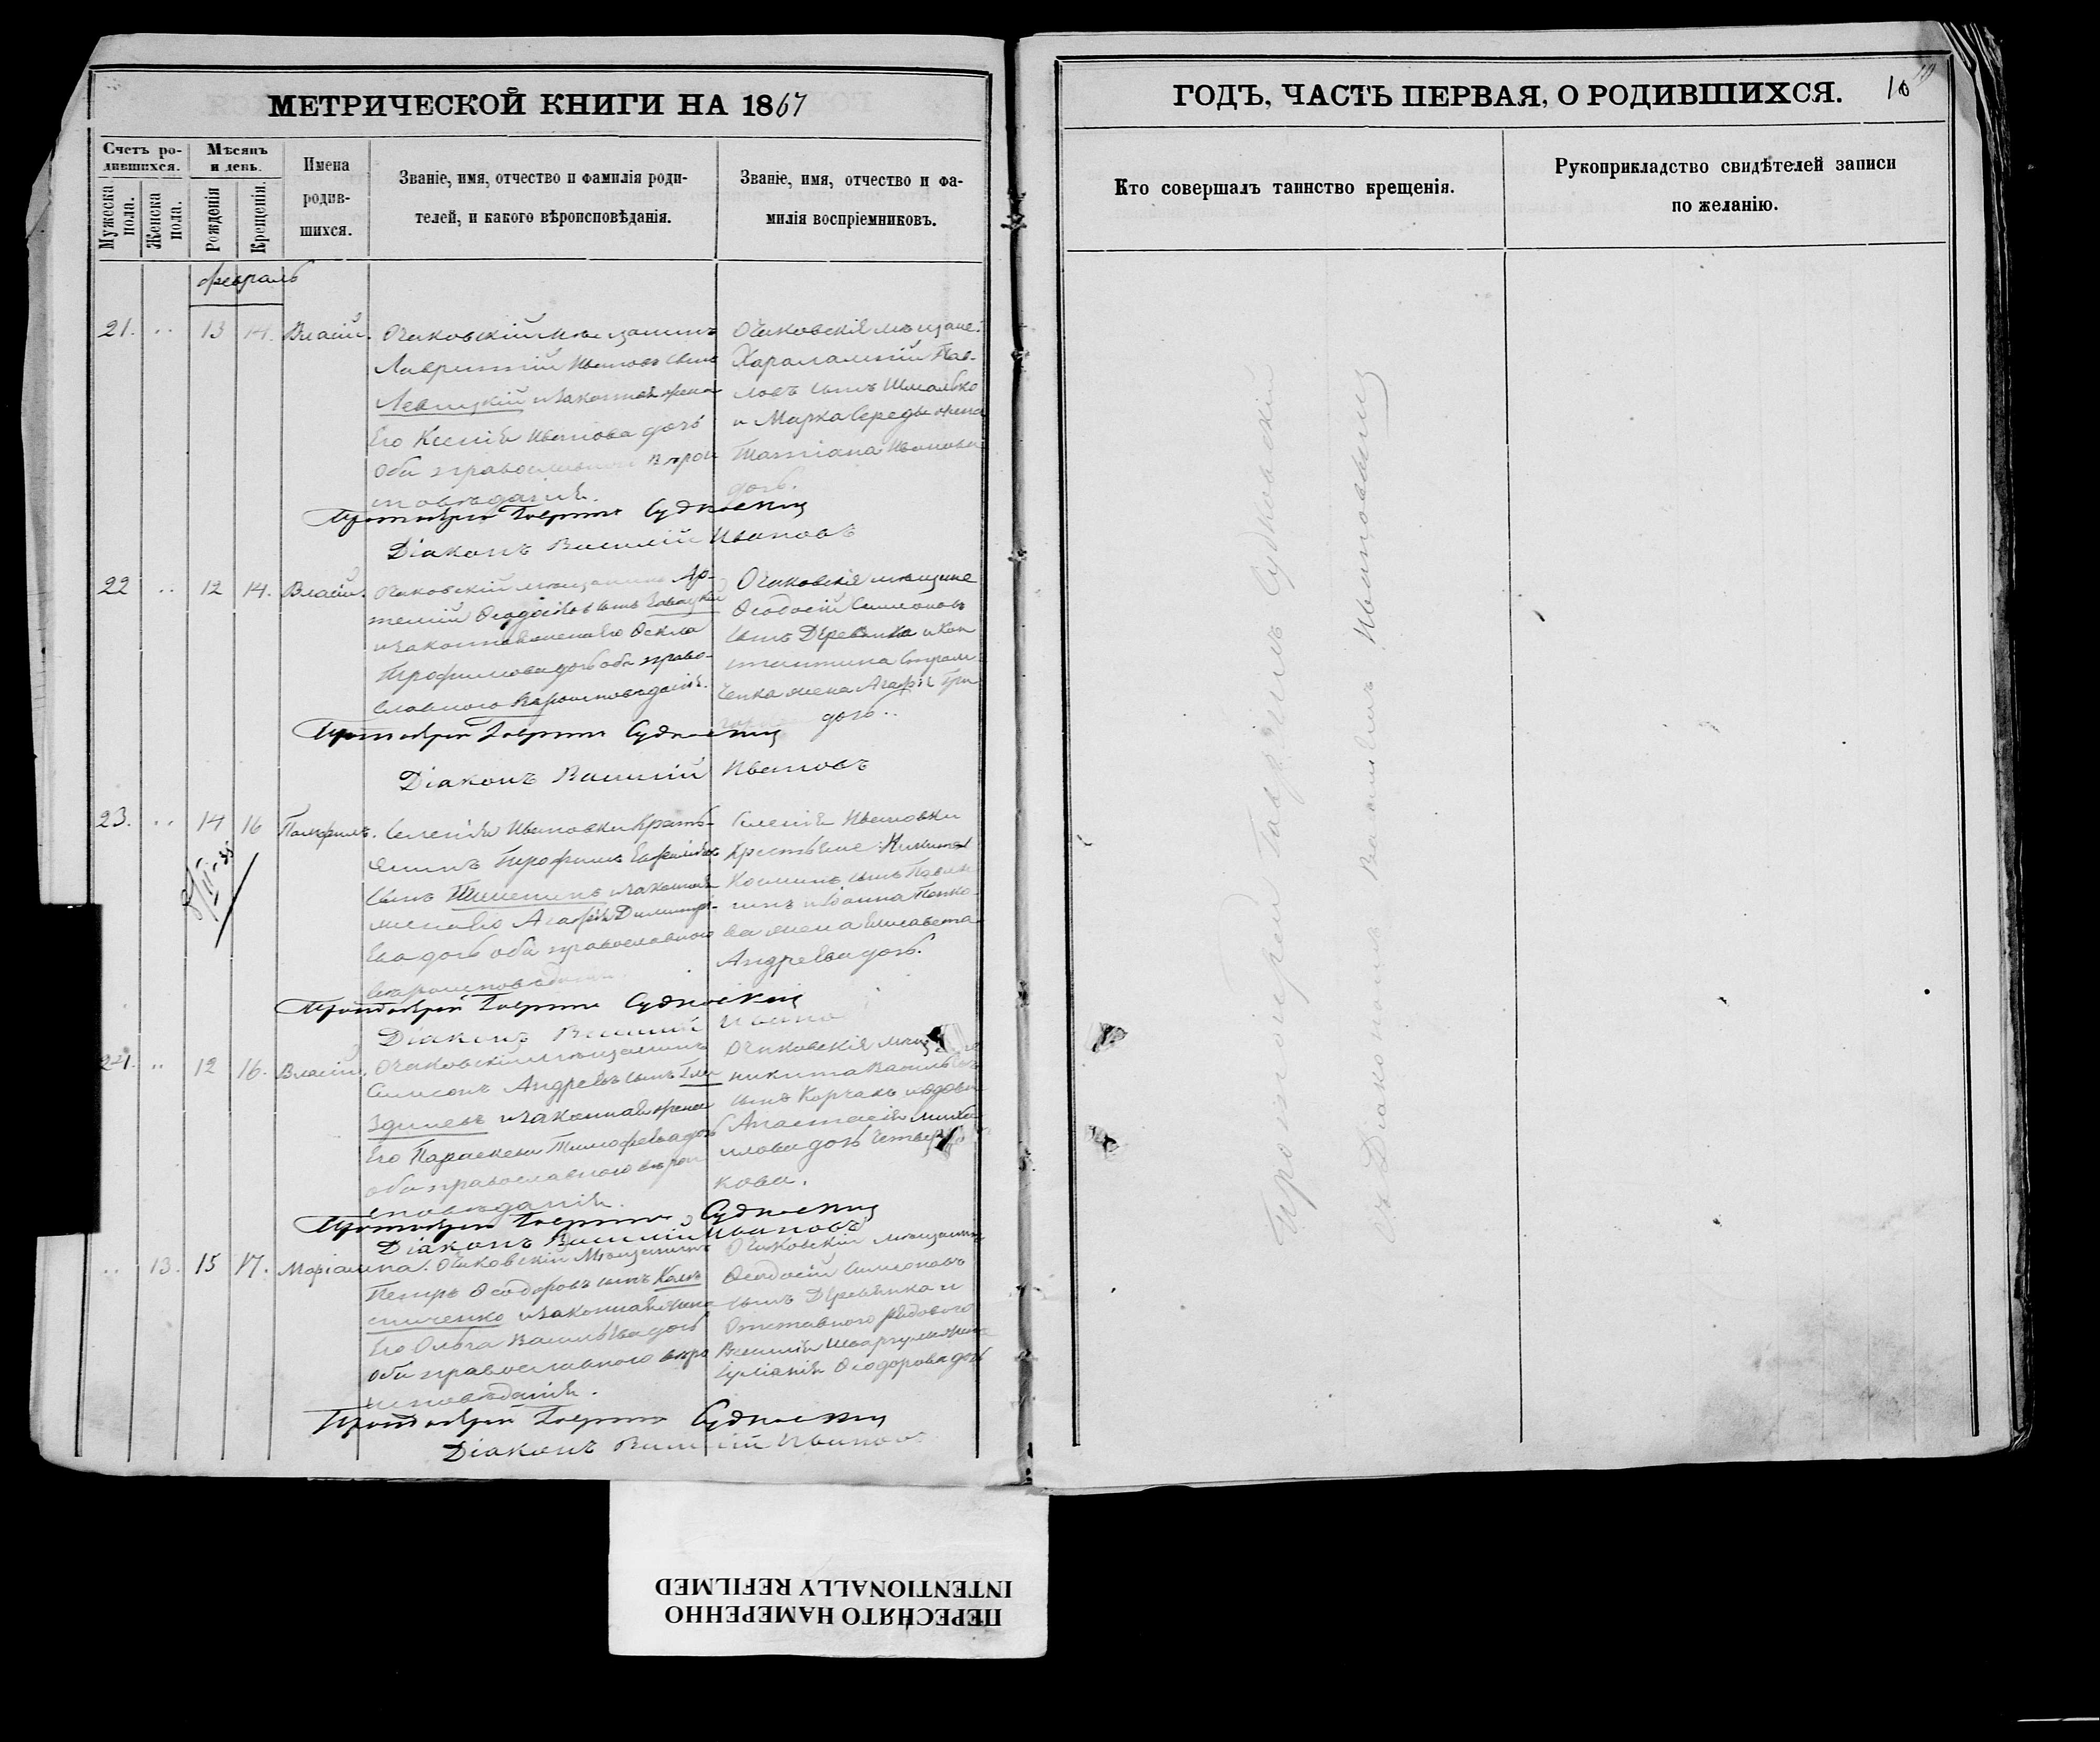 МЕТРИЧЕСКОЙ КНИГИ НА 1867
Счетъ ро-
дившихся.
Мужеска пола.
Женска пола.
Мѣсяцъ
и день.
Рожденія
Крещенія.
Имена
родив-
шихся.
Званіе, имя, отчество и фамилія роди-
телей, и какого вѣроисповѣданія.
Званіе, имя, отчество и фа-
милія воспріемниковъ.
февраль
21. .. 13 14. Власій.
Очаковскій мѣщанинъ
Лаврентій Ивановъ сынъ
Левицкій и законная жена
Его Ксенія Иванова дочь
Оба православнаго вѣрои
сповѣданія.
Очаковскія мѣщане:
Харалампій Пав-
ловъ сынъ
и Марка Середы жена
Татіана Иванова
дочь.
Протоіерей Гавріилъ Судковскій
Діаконъ Василій Ивановъ
22 .. 12 14. Власій.
Очаковскій мѣщанинъ Ар-
темій Ѳеодосіевъ сынъ
и законная жена Его Ѳекла
Трофимова дочь оба право-
славнаго вѣроисповѣданія.
Очаковскія мѣщане
Ѳеодосій Симеоновъ
сынъ Деревянка и Кон
стантина
жена Агафія Гри
дочь..
Протоіерей Гавріилъ Судковскій
Діаконъ Василій Ивановъ
23. .. 14 16 Памфилъ.
Селенія Ивановки Кресть-
янинъ Трофимъ
сынъ и законная
жена Его Агафія Димитрі-
ева дочь оба православнаго
вѣроисповѣданія.
Селенія Ивановки
Крестьяне: Никита
Косминъ сынъ
и Іоанна
жена Елисавета
Андреева дочь.
Протоіерей Гавріилъ Судковскій
Діаконъ Василій Ивановъ
24. .. 12 16. Власій.
Очаковскій мѣщанинъ
Симеонъ Андреевъ сынъ Гла
здиевъ и законная жена
Его Параскева Тимофеева дочь
оба православнаго вѣрои
сповѣданія.
Очаковскія
никита Васильевъ
сынъ Корчакъ и вдова
Анастасія Миха
илова дочь
кова.
Протоіерей Гавріилъ Судковскій
Діаконъ Василій Ивановъ
.. 13. 15 17. Маріамна.
Очаковскій мѣщанинъ
Петръ Ѳеодоровъ сынъ
и законная жена
Его Ольга Васильева дочь
оба православнаго вѣро
исповѣданія.
Очаковскій мѣщанинъ
Ѳеодосій Симеоновъ
сынъ Деревянка и
Отставного рядового
Василія жена
Іуліанія Ѳеодорова дочь
Протоіерей Гавріилъ Судковскій
Діаконъ Василій Ивановъ
ГОДЪ, ЧАСТЬ ПЕРВАЯ, О РОДИВШИХСЯ.
10
Кто совершалъ таинство крещенія.
Рукоприкладство свидѣтелей записи
по желанію.
Протоіерей Гавріилъ Судковскій
съ Діакономъ Василіемъ Ивановымъ
ПЕРЕСНЯТО НАМЕРЕННО
INTENTIONALLY REFILMED